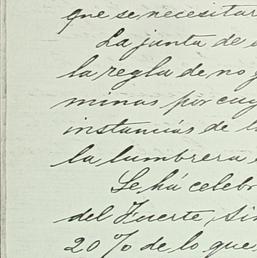 que se necesitar
La junta de
la regla de no
minas por cuy
instancias de l
la lumbrera
Se há celebr
del Fuerte, Sin
20 % de lo que